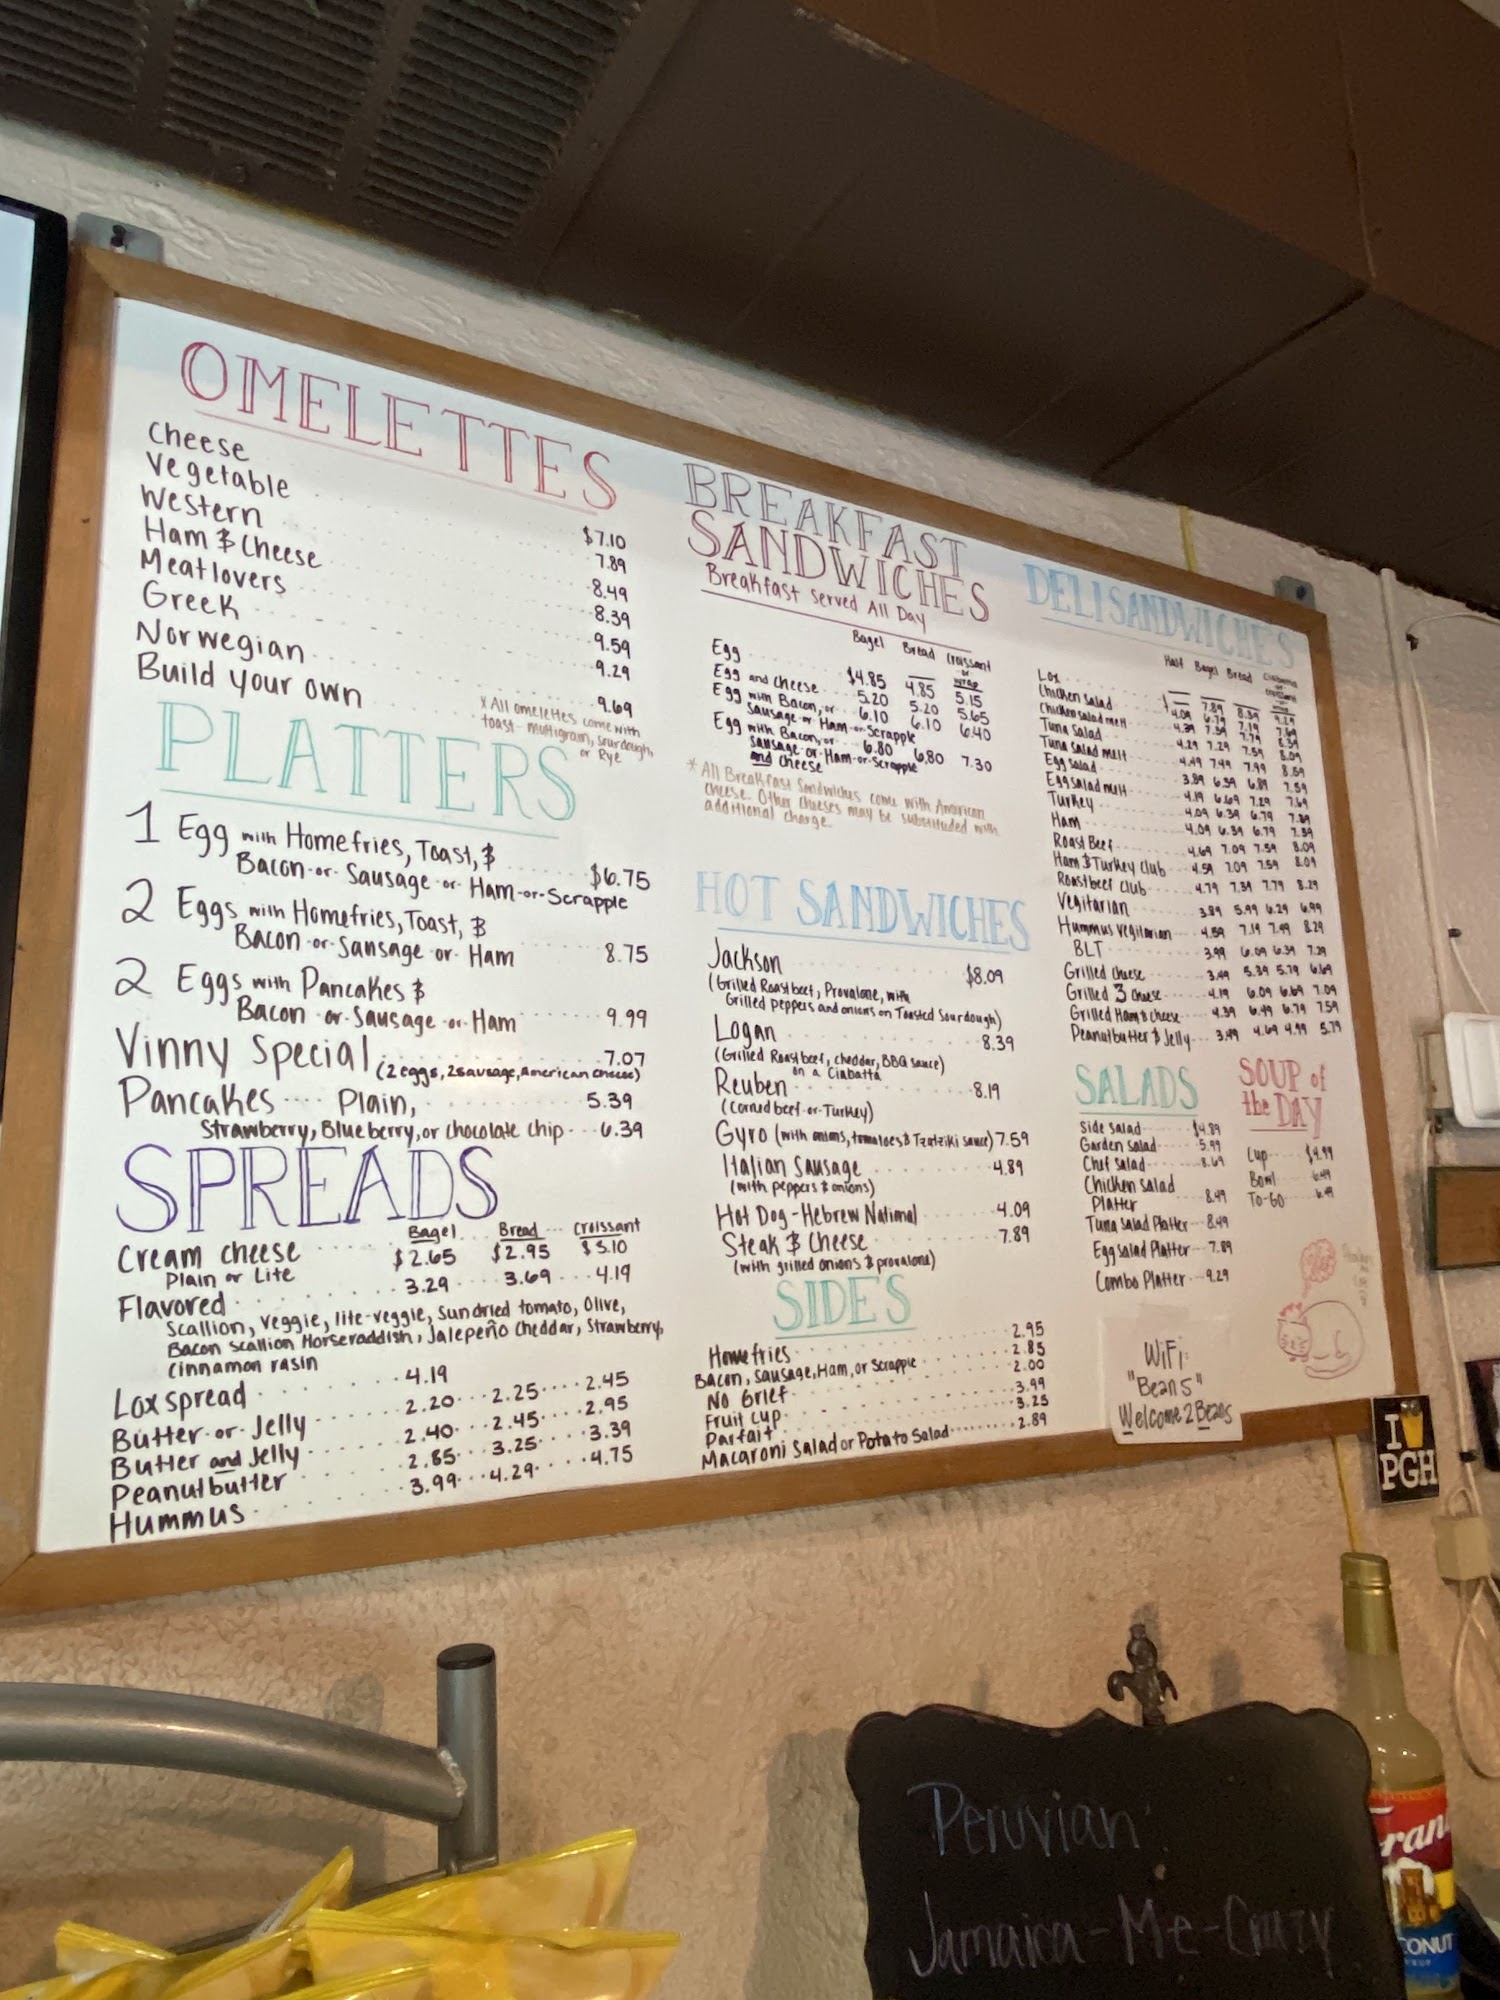 OMELETTES
Cheese
Vegetable $7.10
Western 7.89
Ham & Cheese 8.49
Meatlovers 8.39
Greek 9.59
Norwegian 9.29
Build your own 9.69
* All omelettes come with
toast - multigrain, sourdough,
or Rye
PLATTERS
1 Egg with Homefries, Toast, &
Bacon-or-Sausage-or-Ham-or-Scrapple $6.75
2 Eggs with Homefries, Toast, &
Bacon-or-Sausage-or-Ham 8.75
2 Eggs with Pancakes &
Bacon-or-Sausage-or-Ham 9.99
Vinny Special 7.07
(2 eggs, 2 sausage, American cheese)
Pancakes Plain, 5.39
Strawberry, Blueberry, or chocolate chip 6.39
SPREADS
Bagel Bread Croissant
Cream cheese $2.65 $2.95 $3.10
Plain or Lite
Flavored 3.29 3.69 4.19
Scallion, veggie, lite-veggie, sundried tomato, Olive,
Bacon scallion Horseraddish, Jalepeño Cheddar, Strawberry,
Cinnamon rasin
Lox spread 4.19
Butter-or-Jelly 2.20 2.25 2.45
Butter and Jelly 2.40 2.45 2.95
Peanutbutter 2.85 3.25 3.39
Hummus 3.99 4.29 4.75
BREAKFAST
SANDWICHES
Breakfast Served All Day
Bagel Bread Croissant
or
wrap
Egg $4.85 4.85 5.15
Egg and cheese 5.20 5.20 5.65
Egg with Bacon, or 6.10 6.10 6.40
Sausage-or-Ham-or-Scrapple
Egg with Bacon, or 6.80 6.80 7.30
Sausage-or-Ham-or-Scrapple
and cheese
* All Breakfast Sandwiches come with American
cheese. Other cheeses may be substituted with
additional charge.
HOT SANDWICHES
Jackson $8.09
(Grilled Roastbeef, Provalone, with
Grilled peppers and onions on Toasted Sourdough)
Logan 8.39
(Grilled Roastbeef, cheddar, BBQ sauce)
on a Ciabatta
Reuben 8.19
(Corned beef-or-Turkey)
Gyro (with onions, tomatoes & Tzatziki sauce) 7.59
Italian Sausage 4.89
(with peppers & onions)
Hot Dog - Hebrew National 4.09
Steak & Cheese 7.89
(with grilled onions & provalone)
SIDES
Homefries 2.95
Bacon, Sausage, Ham, or Scrapple 2.85
NO Grief 2.00
Fruit cup 3.99
Parfait 3.25
Macaroni Salad or Potato Salad 2.89
DELI SANDWICHES
Half Bagel Bread
Lox 7.89 8.39 9.29
Chicken salad
Chicken salad melt
Tuna Salad
Tuna Salad melt
Egg salad
Egg salad melt
Turkey
Ham
Roast Beef
Ham & Turkey Club
Roastbeef club 4.79 7.39 7.79 8.29
Vegitarian 3.89 5.99 6.29 6.99
Hummus Vegitarian 4.59 7.19 7.49 8.29
BLT 3.99 6.09 6.39 7.29
Grilled Cheese 3.49 5.39 5.79 6.69
Grilled 3 Cheese 4.19 6.09 6.69 7.09
Grilled Ham & Cheese 4.39 6.49 6.79 7.59
Peanutbutter & Jelly 3.49 4.69 4.99 5.79
SALADS
Side salad $4.89
Garden salad 5.99
Chef salad 8.69
Chicken salad
Platter 8.49
Tuna salad Platter 8.49
Egg salad Platter 7.89
Combo Platter 9.29
SOUP of
the DAY
Cup $4.99
Bowl 6.49
TO-GO 6.49
WiFi:
"Beans"
Welcome2Beans
I
PGH
Peruvian
Jamaica-Me-Crazy
rani
CONUT